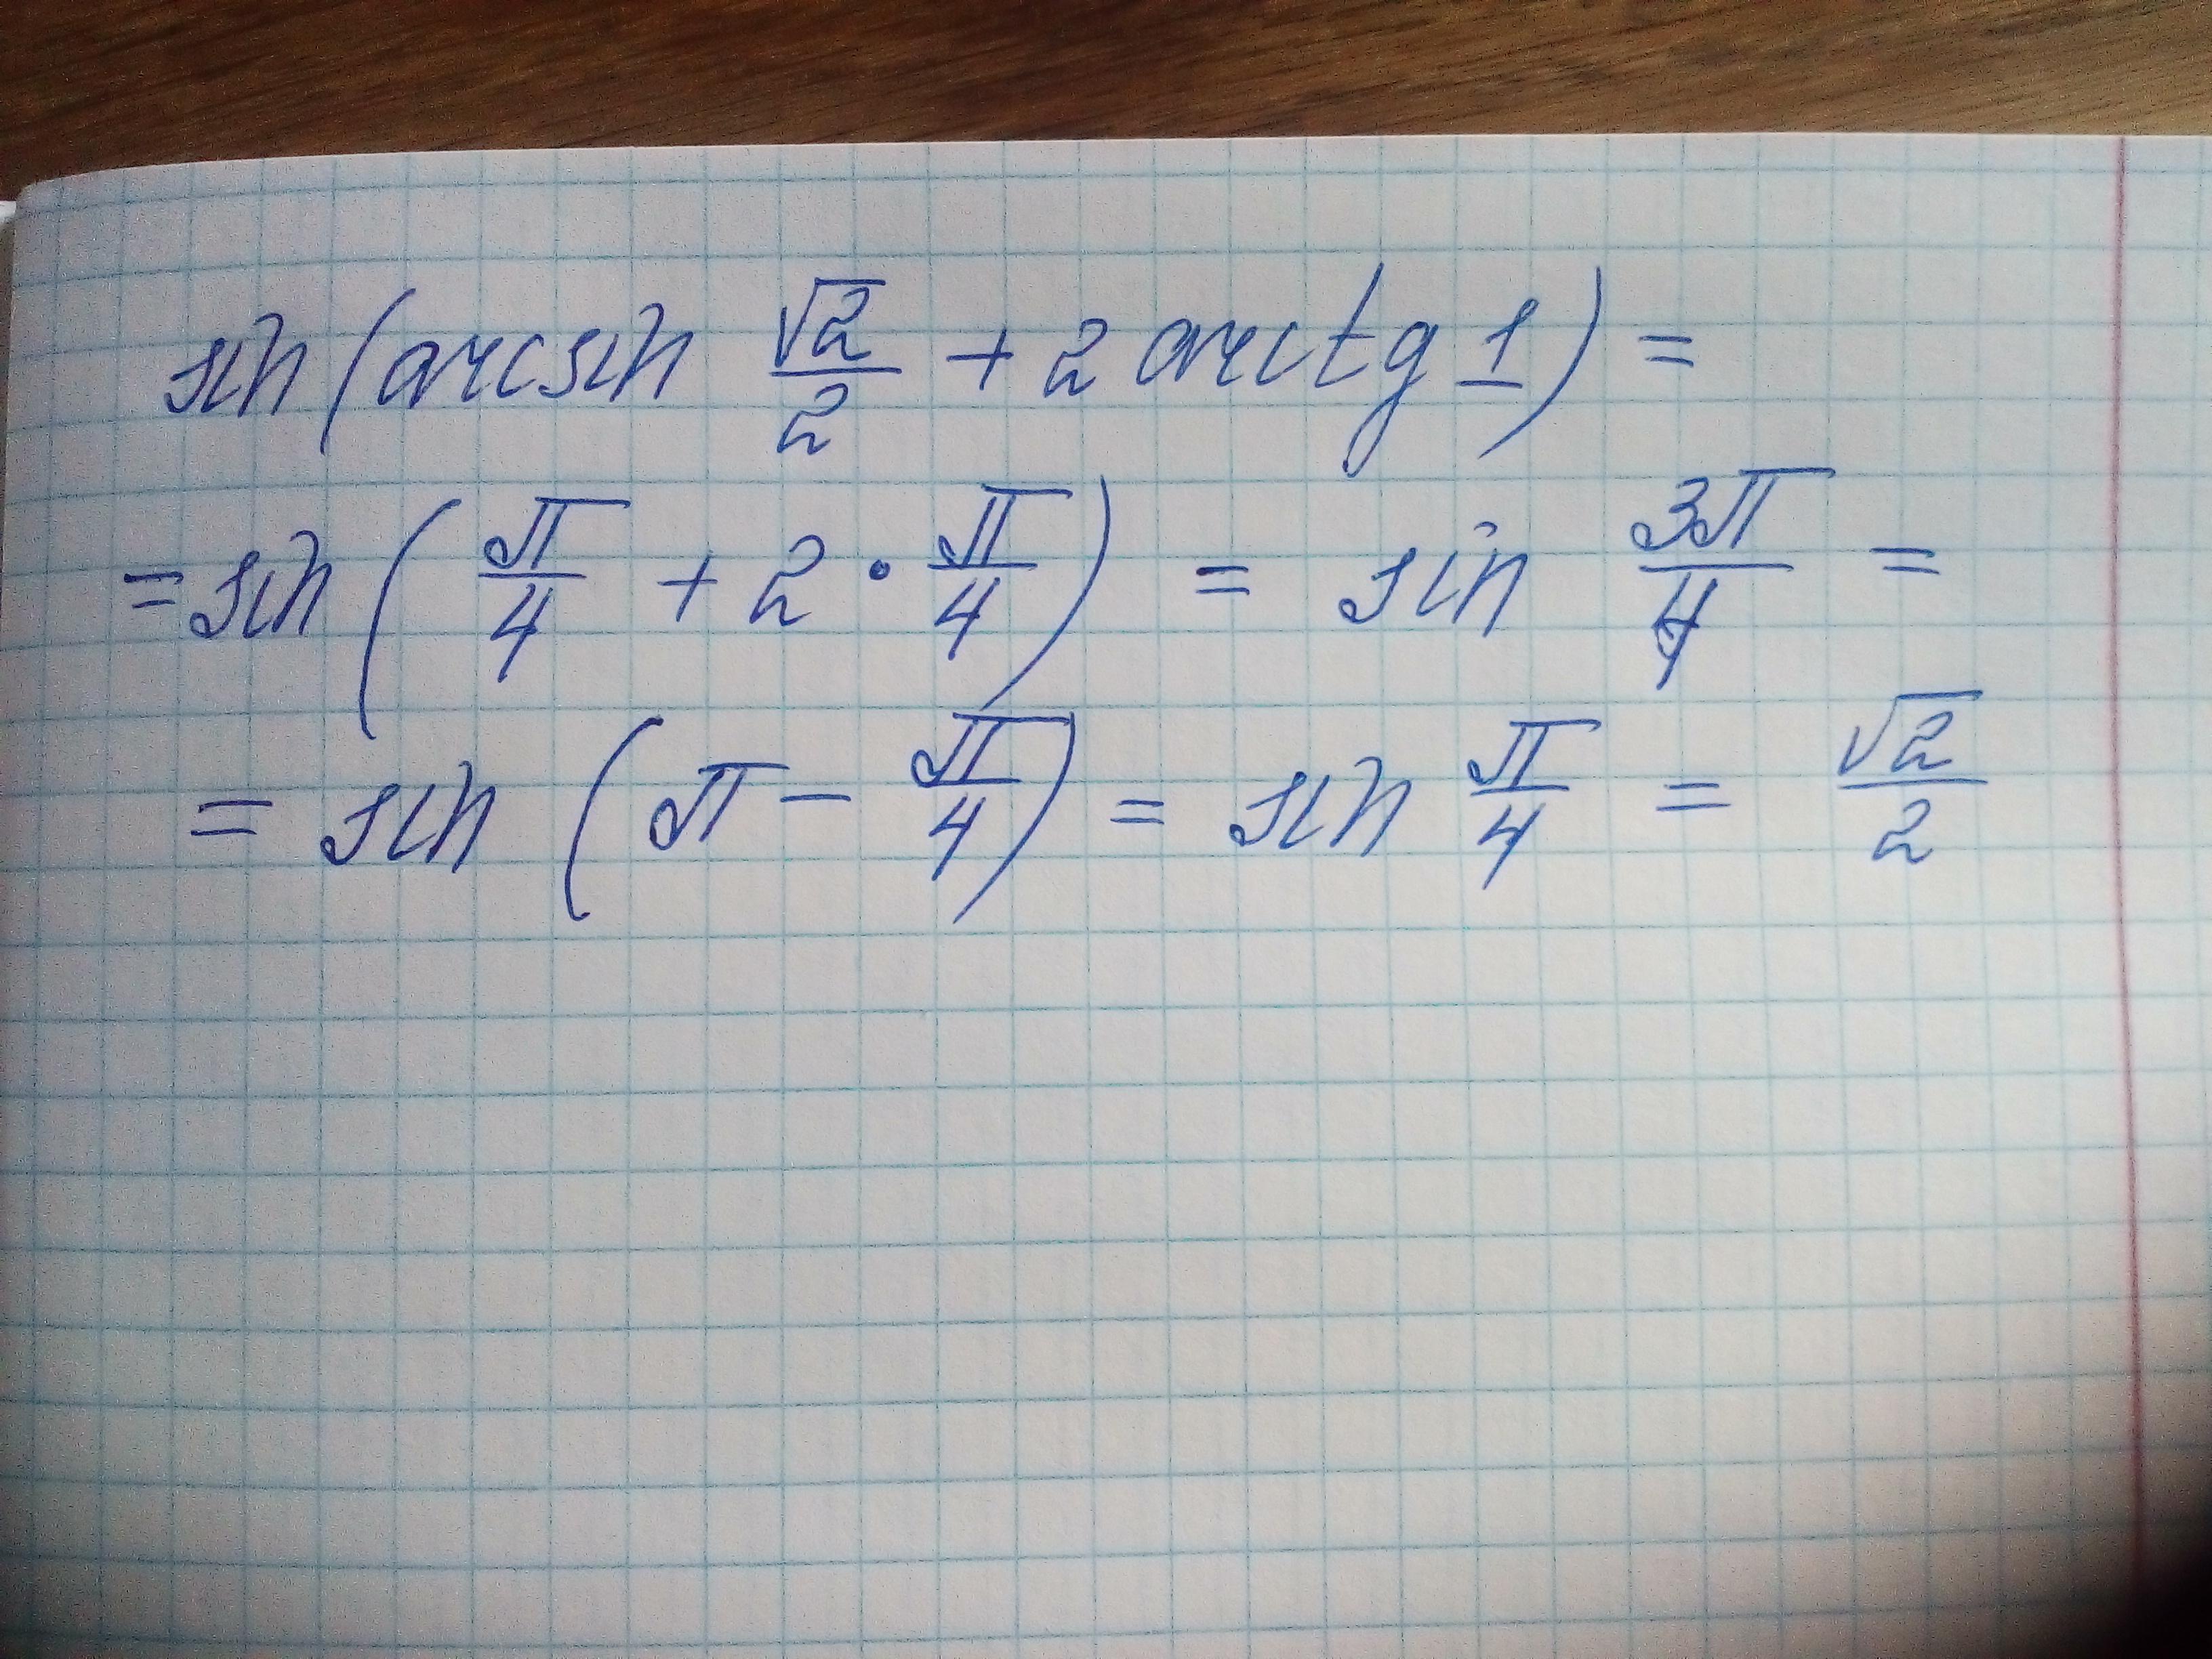 sin(arcsin √2/2 + 2 arctg 1) =
= sin(π/4 + 2 · π/4) = sin 3π/4 =
= sin (π − π/4) = sin π/4 = √2/2